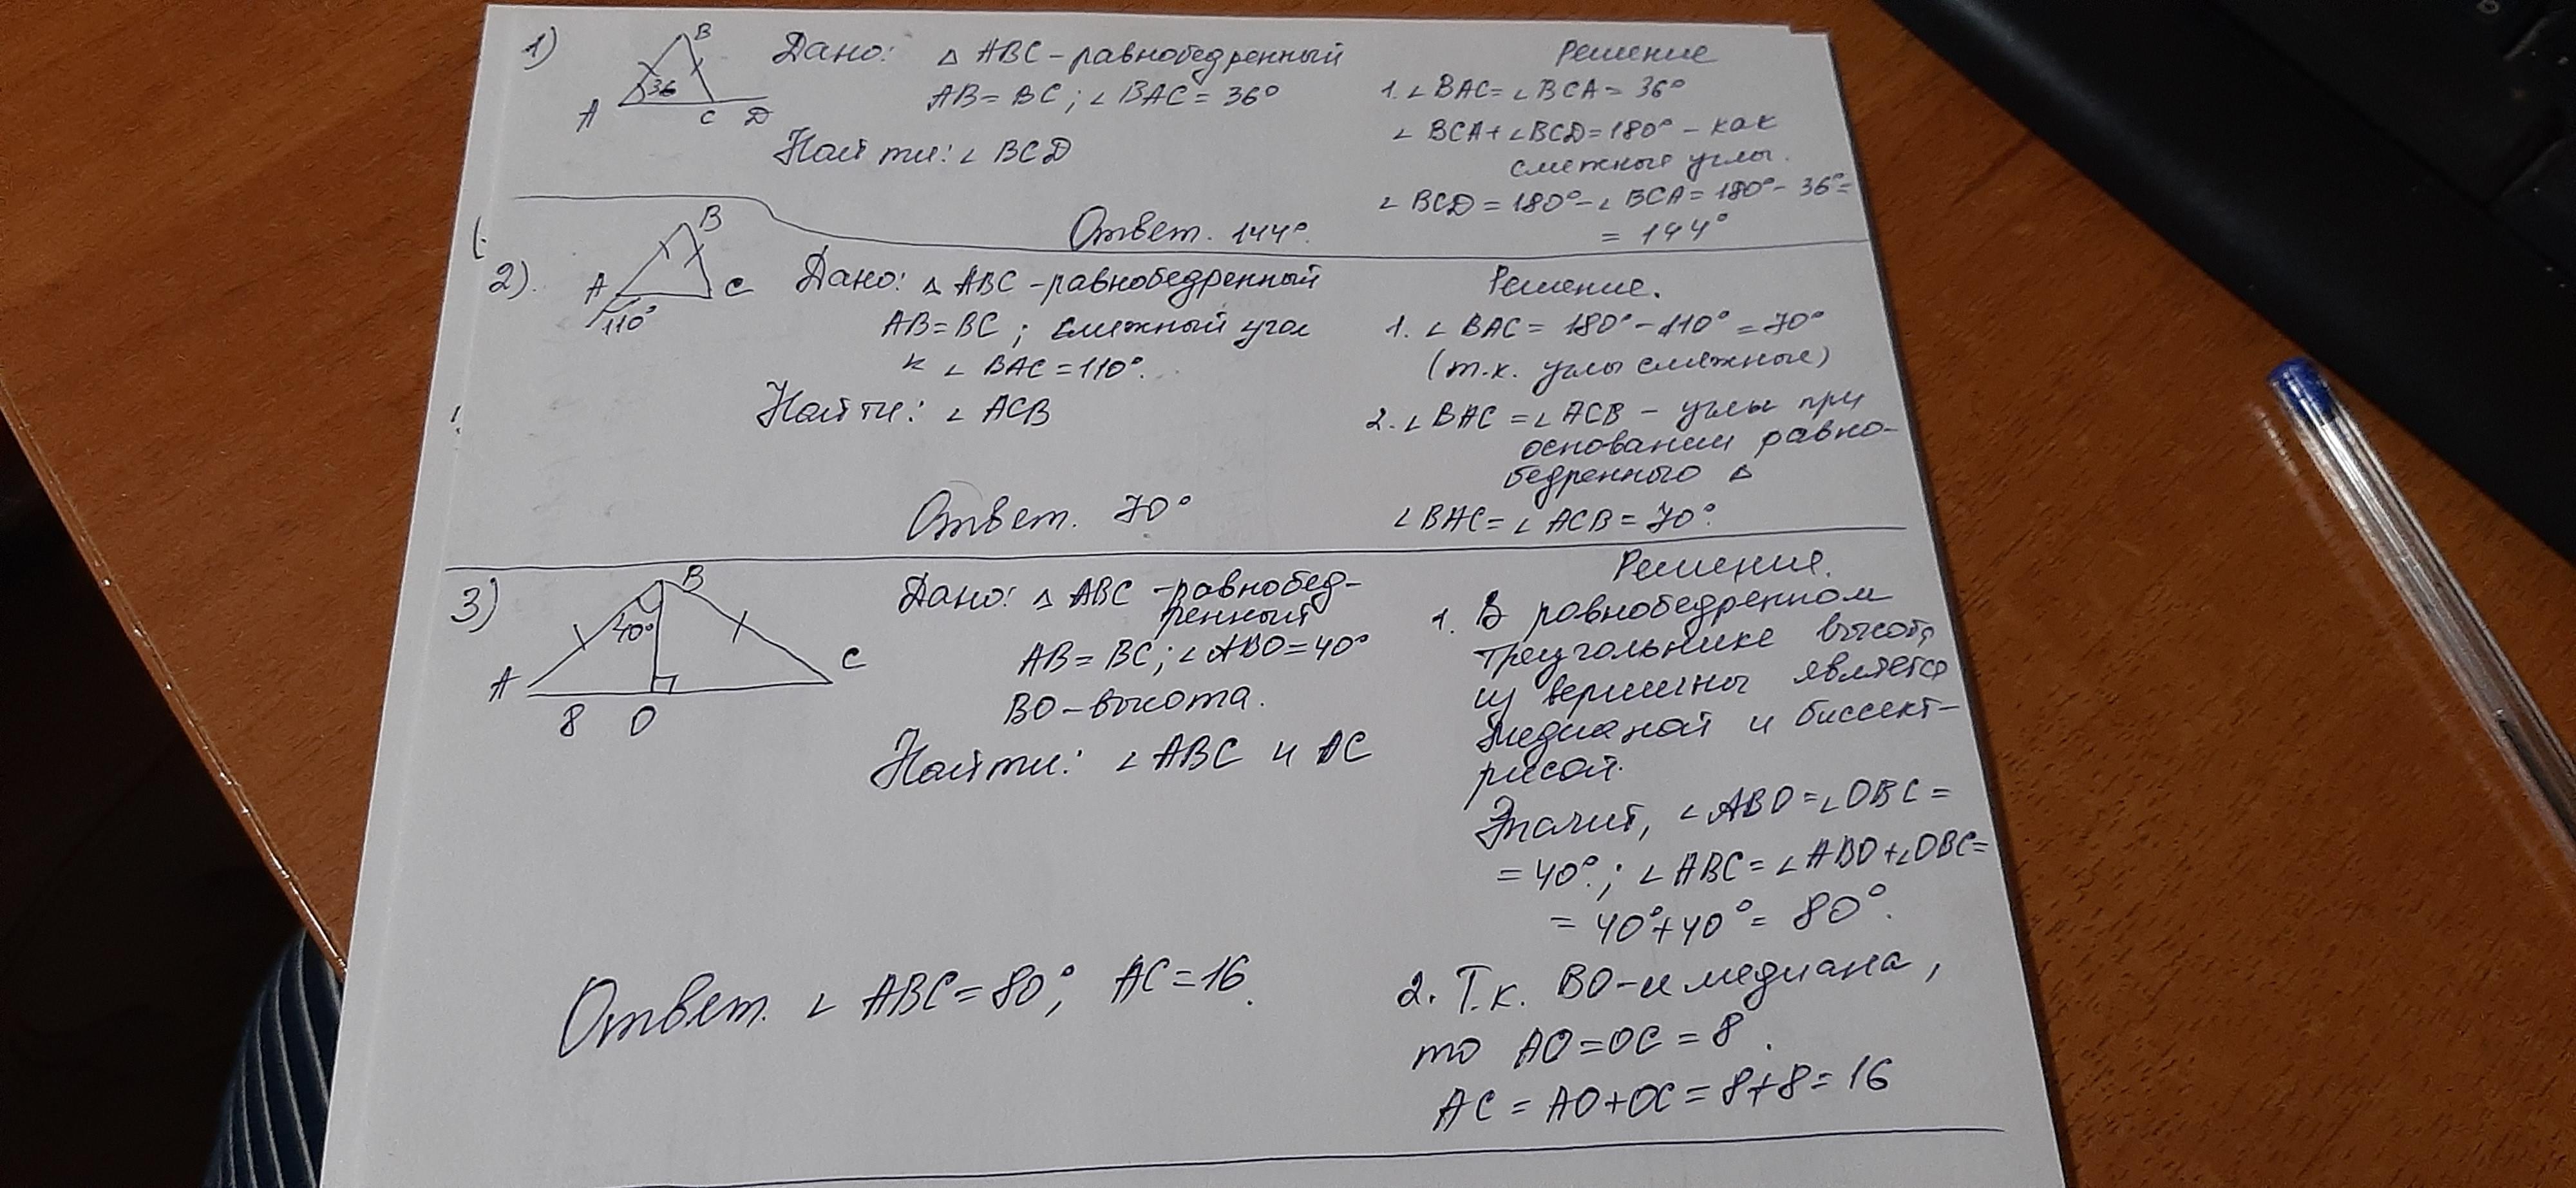 1)
B
36
A
C D
Дано: △ ABC - равнобедренный
AB = BC ; ∠ BAC = 36°
Найти: ∠ BCD
Решение
1. ∠ BAC = ∠ BCA = 36°
∠ BCA + ∠ BCD = 180° - как
смежные углы.
∠ BCD = 180° - ∠ BCA = 180° - 36° =
= 144°
Ответ. 144°.
2).
B
A C
110°
Дано: △ ABC - равнобедренный
AB = BC ; смежный угол
к ∠ BAC = 110°.
Найти: ∠ ACB
Решение.
1. ∠ BAC = 180° - 110° = 70°
(т.к. углы смежные)
2. ∠ BAC = ∠ ACB - углы при
основании равно-
бедренного △
∠ BAC = ∠ ACB = 70°.
Ответ. 70°
3)
B
40°
A C
8 O
Дано: △ ABC - равнобед-
ренный
AB = BC ; ∠ ABO = 40°
BO - высота.
Найти: ∠ ABC и AC
Решение.
1. В равнобедренном
треугольнике высота
из вершины является
медианой и биссект-
рисой.
Значит, ∠ ABO = ∠ OBC =
= 40°. ; ∠ ABC = ∠ ABO + ∠ OBC =
= 40° + 40° = 80°.
2. Т.к. BO - и медиана,
то AO = OC = 8.
AC = AO + OC = 8 + 8 = 16
Ответ. ∠ ABC = 80° ; AC = 16.